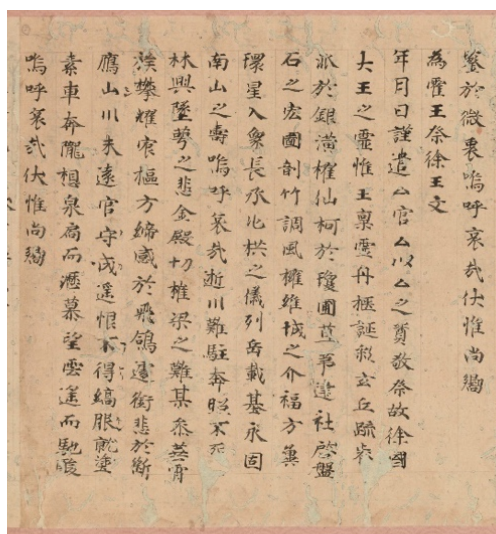 鑒於微衷嗚呼哀哉伏惟尚饗
為霍王祭徐王文
年月日謹遣厶官厶以厶之質敬祭故徐國
大王之靈惟王稟靈丹極誕秘玄丘疏
派於銀潢擢仙柯於瓊圃苴茅建社啓盤
石之宏圖剖竹調風擁維城之介福方冀
環星入衆長承北拱之儀列岳載基永固
南山之壽嗚呼哀哉逝川難駐奔不死
林興墜萼之悲金殿切摧梁之難某忝蕃霄
族攀耀宸樞方締感於飛鴒遽銜悲於斷
鴈山川未遠官守或遥恨不得縞服就塗
素車奔隴想泉扃而灑慕望雲遥而馳酸
嗚呼哀哉伏惟尚饗